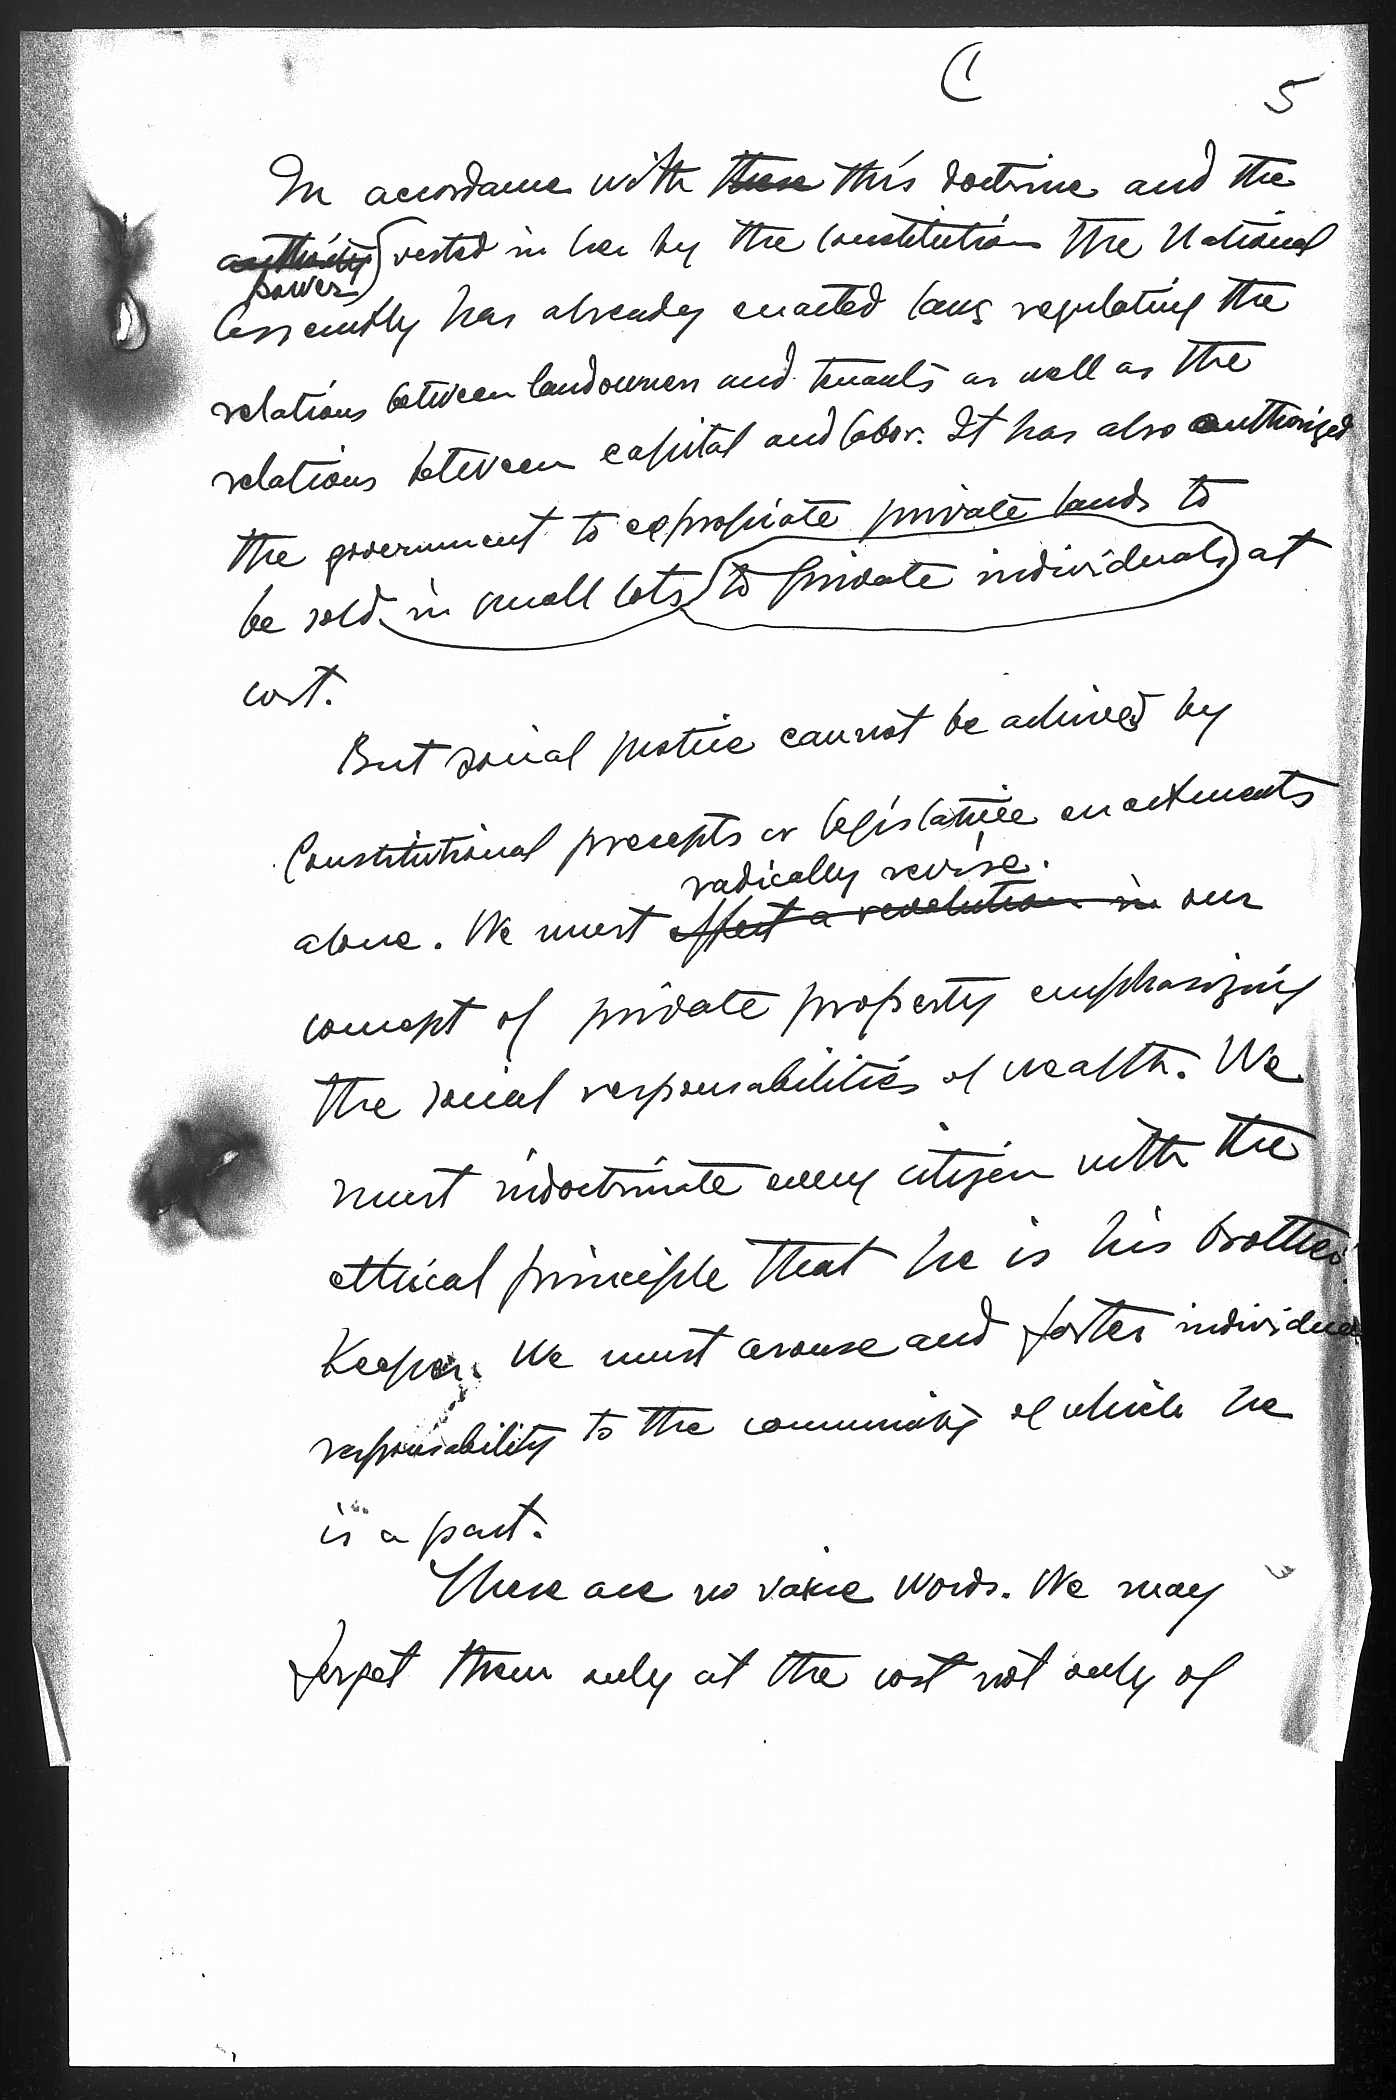 C 5
In accordance with these this doctrine and the
authority vested in her by the Constitution the National
power
Assembly has already enacted laws regulating the
relations between landowners and tenants as well as the
relations between capital and labor. It has also authorized
the government to expropriate private lands to
be sold in small lots to private individuals at
cost.
But social justice cannot be achieved by
Constitutional precepts or legislative enactments
radically revise
alone. We must effect a revolution in our
concept of private property emphasizing
the social responsabilities of wealth. We
must indoctrinate every citizen with the
ethical principle that he is his brother's
Keeper. We must arouse and foster individual
responsability to the community of which he
is a part.
These are no vaine words. We may
forget them only at the cost not only of